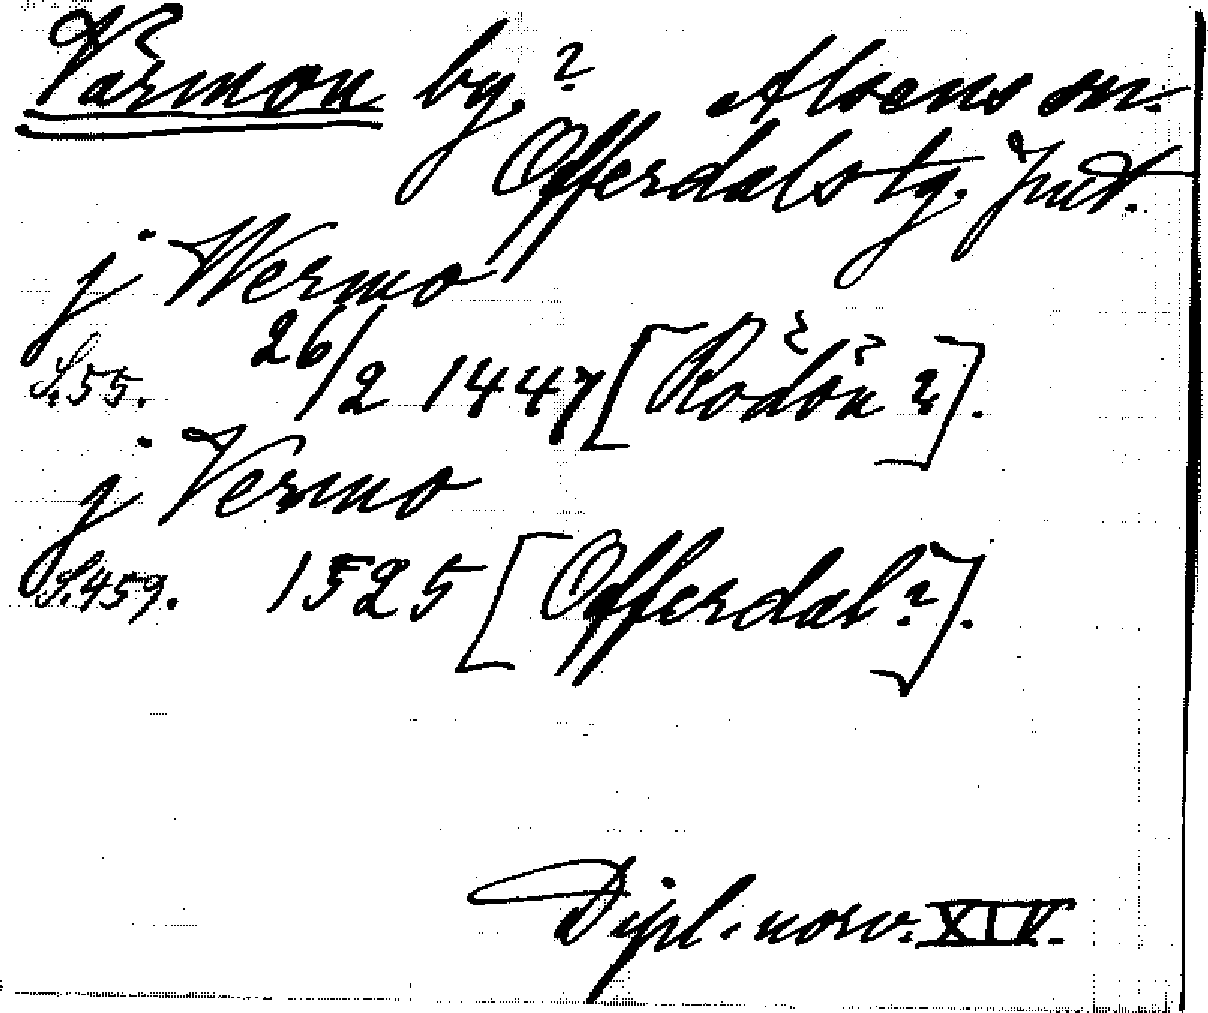 Värmon by.? Alsens sn.
Offerdals tg. Jmtl.
j Wermo
S.55. 26/2 1447 [Rödön?].
j Vermo
S.459. 1525 [Offerdal?].
Dipl. norv. XIV.